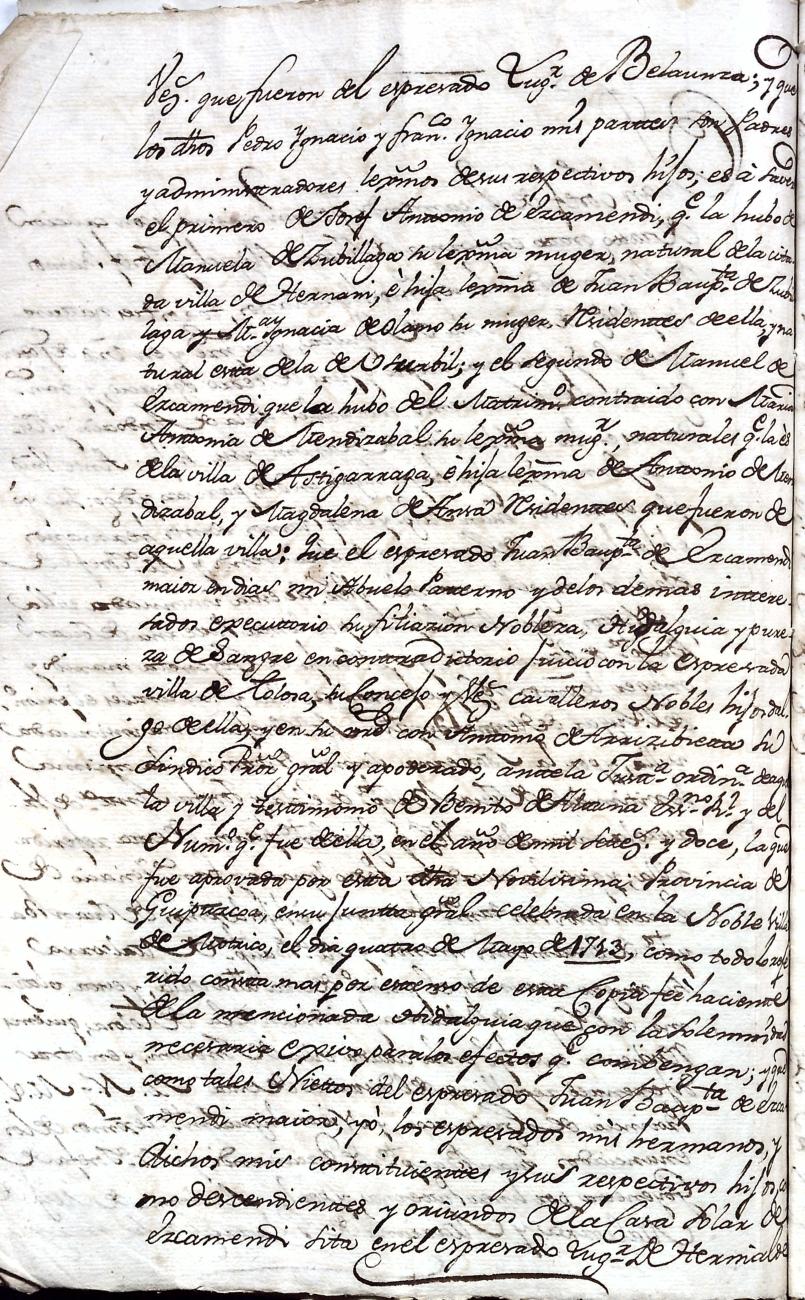 Vez.s que fueron del espresado Lug.r de Belaunza; y que
los dhos Pedro Ygnacio y Fran.co Ygnacio mis partes son Padres
y administradores lexmos de sus respectivos hijos; es à saver
el primero de Josef Antonio de Ercamendi, q.e la hubo de
Manuela de Zubillaga su lexma muger, natural de la cita
da villa de Hernani, è hija lexma de Juan Baup.ta de Zubi
laga y M.a Ygnacia de Olano su muger, Residentes de ella, y na
tural esta de la de Usurbil; y el segundo de Manuel de
Ercamendi que la hubo del Matrim.o contraido con Maria
Antonia de Mendizabal su lexma mug.r, naturales q.e la ès
de la villa de Astigarraga, è hija lexma de Antonio de Men
dizabal, y Magdalena de Ansa Residentes que fueron de
aquella villa: que el espresado Juan Baup.ta de Ercamendi
maior en dias mi Abuelo Paterno y de los demas intere-
sados executorio su filiazion Nobleza, Hidalguia y pure
za de Sangre en contradictorio juicio con la espresada
villa de Tolosa, su Concejo y Vez.s cavalleros Nobles hijosdal-
go de ella, y en su ord con Antonio de Arrizibieta su
Sindico Pror gral y apoderado, ante la Justt.a ordin.a de aqu
lla villa y testimonio de Benito de Atauna Ess.no R.l y del
Num.o q.e fue de ella, en el año de mil setez.s y doce, la que
fue aprovada por esta dha Novilisima Provincia de
Guipuzcoa, en su Juntta gral celebrada en la Noble Villa
de Motrico, el dia quatro de Mayo de 1713, como todo lo refe
rido consta mas por estenso de esta Copia feè haciente
de la mencionada Hidalguia que con la solemnidad
necesaria exivo para los efectos q.e combengan; y que
como tales Niettos del espresado Juan Baup.ta de Erca
mendi maior, yò, los espresados mis hermanos, y
dichos mis constituientes y sus respectivos hijos, co
mo descendientes y oriundos de la Casa Solar de
Ercamendi sita en el espresado Lug.r de Hernialde